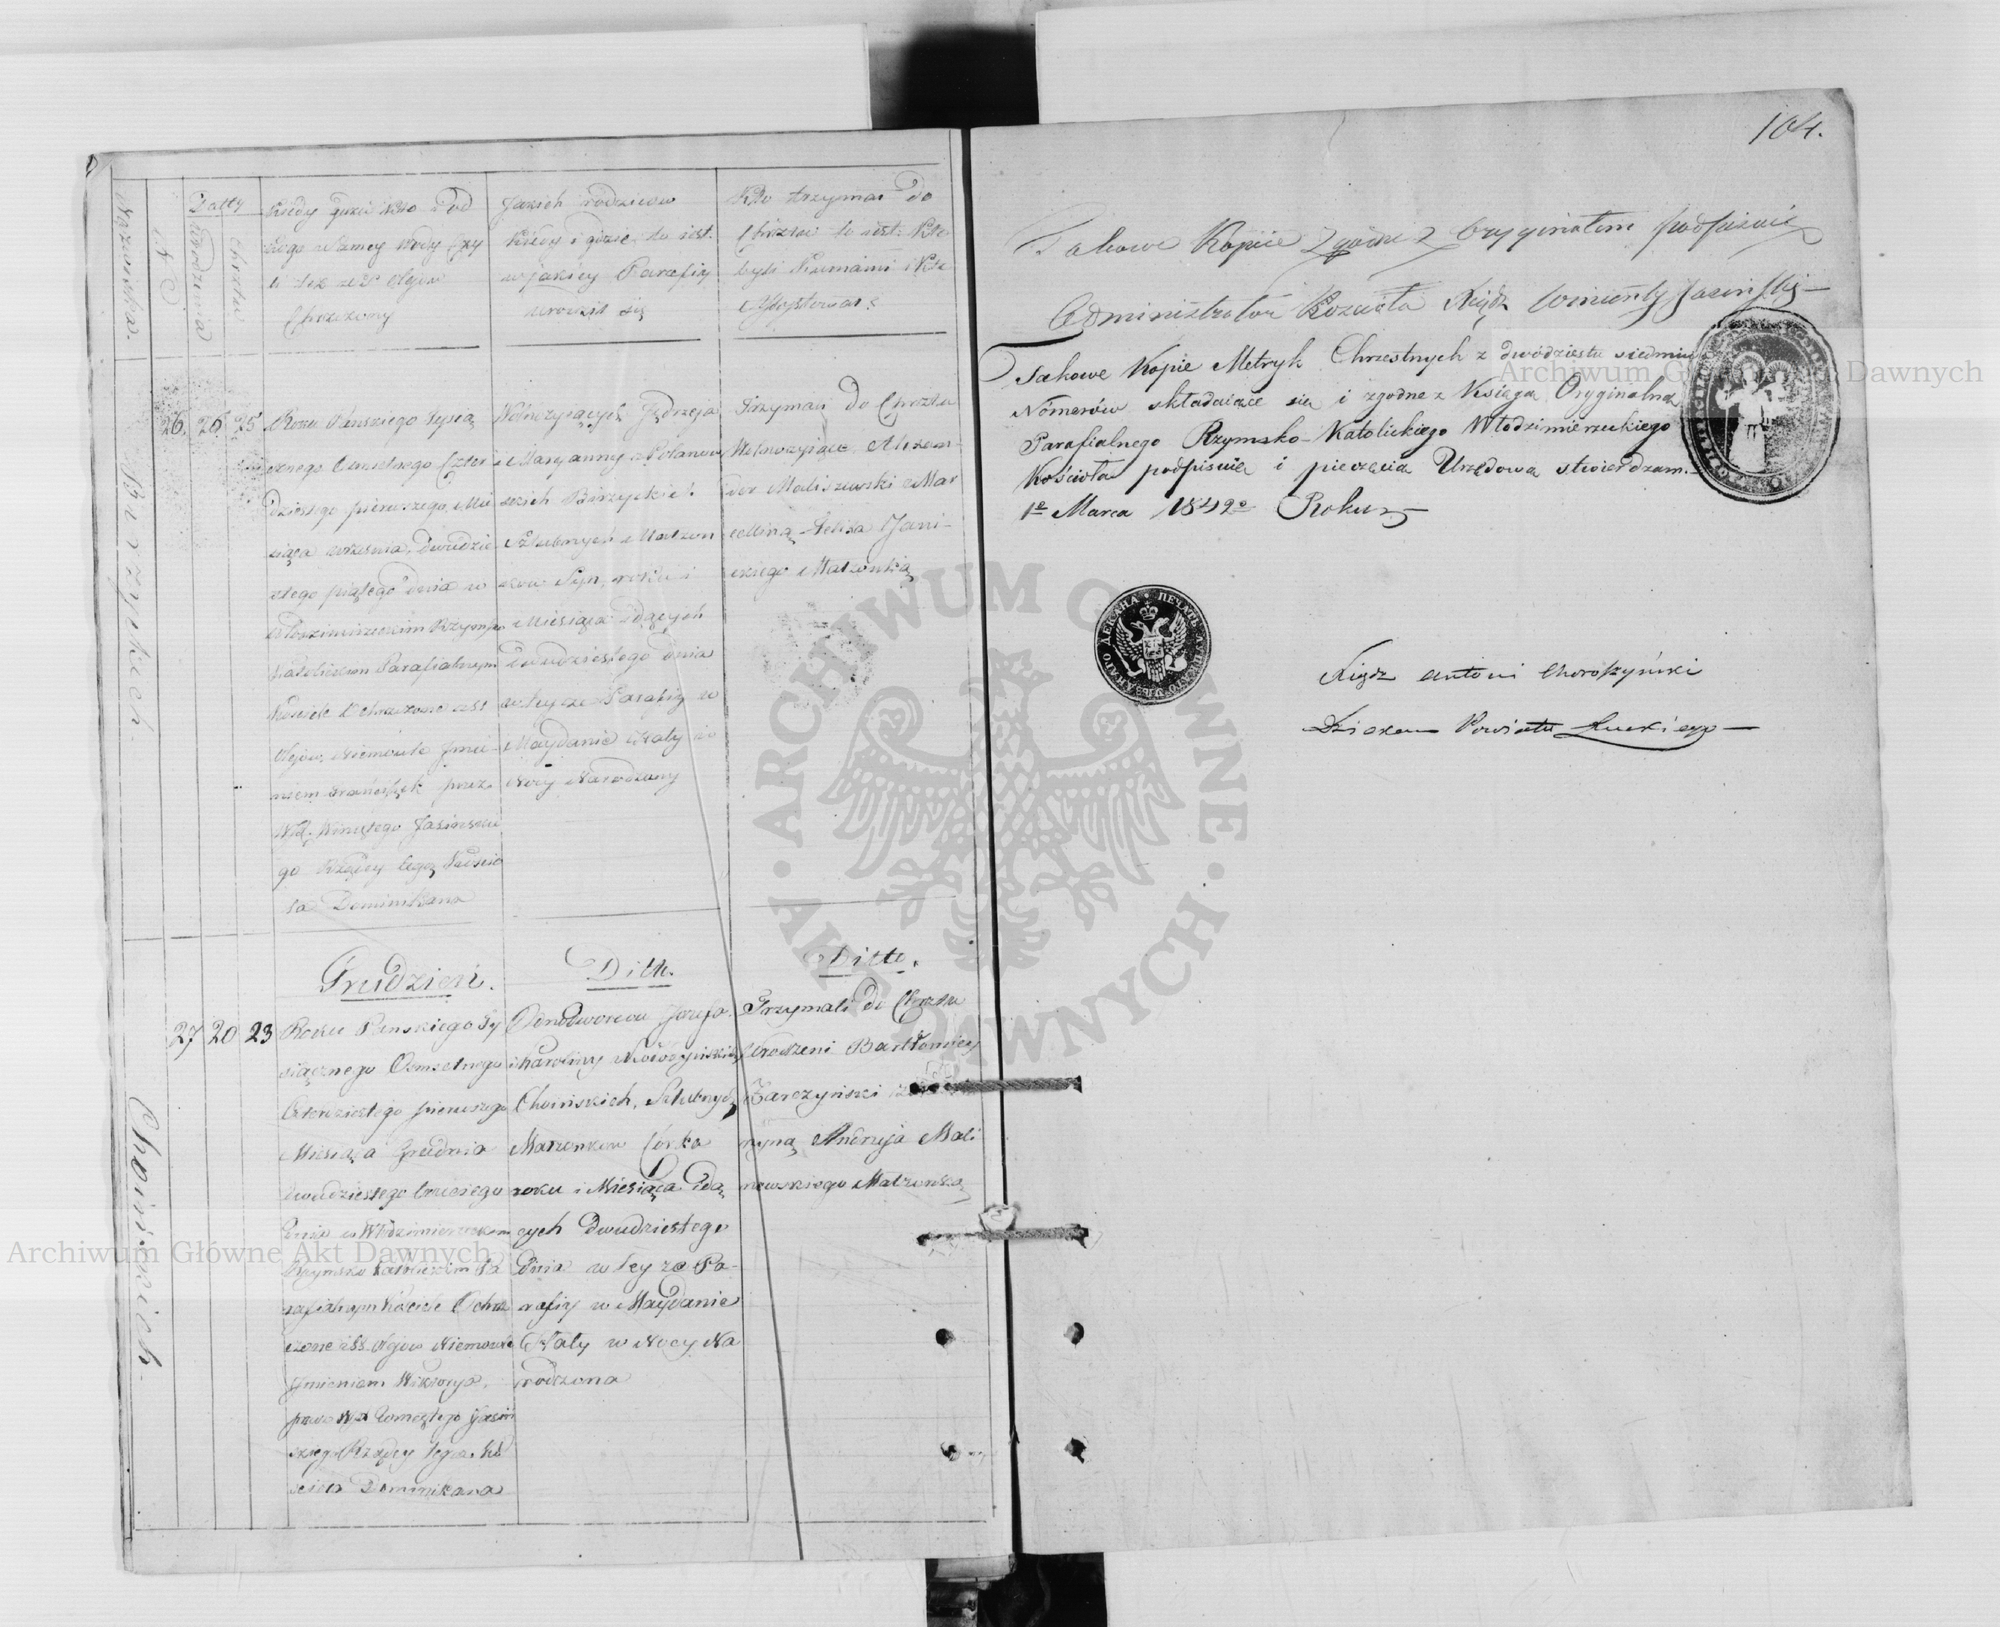 104.
Nazwiska.
N
Datty
Urodzenia
Chrztu
Kiedy gdzie kto i od
kogo z samey wody czy
też z SS Olejów
Chrzczony
Jakich rodziców
Kiedy i gdzie to iest.
w jakiey Parafiy
urodził się
Kto trzymał do
Chrztu to iest: Kto
byli Kumami i Kto
Assystował?
Barzyckich.
26. 26 25
Roku Pańskiego Tysią
cznego Osmsetnego Czter
dziestego pierwszego Mie
siąca Września, dwudzie
stego piątego dnia w
Włodzimirzeckim Rzymsko
Katolickim Parafialnym
Kościele Ochrzczone z SS
Olejów, Niemowle Jmie-
niem przez
WX. Jasińskie
go Rządcy tego Kościo
ła Dominikana
Jędrzeja
i Maryanny z
Barzyckich
Szlubnych Małżon
ków Syn, roku i
Miesiąca idących
Dwudziestego dnia
w tey że Parafiy w
Maydanie Chaty w
Nocy Narodzony
Trzymali do Chrztu
Alexan-
der Maliszewski z Mar
celliną Felixa Jani-
ckiego Małżonką
Grudzień.
Ditto.
Ditto.
Choińskich.
27 20 23
Roku Pańskiego Ty
siącznego Osmsetnego
Czterdziestego pierwszego
Miesiąca Grudnia
dwudziestego trzeciego
Dnia w Włodzimierzeckim
Rzymsko Katolickim Pa
rafialnym Kościele Ochrz
czone z SS. Olejów Niemowle
Jmieniem Wiktorya,
przez WX Wincętego Jasiń
skiego Rządcy tegoż Ko
ścioła Dominikana
Odnodworców Jozefa
i Karoliny
Choińskich, Szlubnych
Małżonków Córka
roku i Miesiąca idą
cych Dwudziestego
dnia w tey że Pa-
rafiy w Maydanie
Chaty w Nocy Na
rodzona
Trzymali do Chrztu
Urodzeni Bartłomiey
Zarczyński z
ryną Andrzeja Mali
nowskiego Małżonką
Takowe Kopije Zgodne z Oryginałem podpisuię
Administrator Kościoła Xiądz Wincenty Jasiński
Takowe Kopie Metryk Chrzestnych z dwódziestu siedmiu
Nómerów składaiące się i zgodne z Księgą Oryginalną
Parafialnego Rzymsko-Katolickiego Włodzimierzeckiego
Kościoła podpisuię i pieczęcią Urzędową stwierdzam.
1o Marca 1842o Roku
Xiądz Antoni Choroszyński
Dziekan Powiatu Łuckiego
Archiwum Główne Akt Dawnych
Archiwum Główne Akt Dawnych
ARCHIWUM GŁÓWNE
AKT DAWNYCH